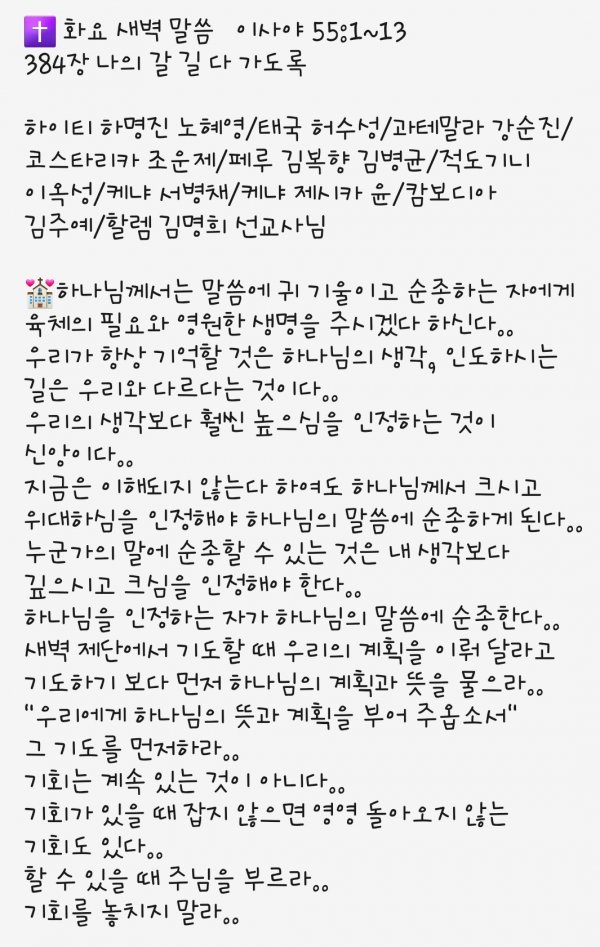 ✝️ 화요 새벽 말씀 이사야 55:1~13
384장 나의 갈 길 다 가도록
하이티 하명진 노혜영/태국 허수성/과테말라 강순진/
코스타리카 조운제/페루 김복향 김병균/적도기니
이옥성/케냐 서병채/케냐 제시카 윤/캄보디아
김주예/할렘 김명희 선교사님
💒하나님께서는 말씀에 귀 기울이고 순종하는 자에게
육체의 필요와 영원한 생명을 주시겠다 하신다..
우리가 항상 기억할 것은 하나님의 생각, 인도하시는
길은 우리와 다르다는 것이다..
우리의 생각보다 훨씬 높으심을 인정하는 것이
신앙이다..
지금은 이해되지 않는다 하여도 하나님께서 크시고
위대하심을 인정해야 하나님의 말씀에 순종하게 된다..
누군가의 말에 순종할 수 있는 것은 내 생각보다
깊으시고 크심을 인정해야 한다..
하나님을 인정하는 자가 하나님의 말씀에 순종한다..
새벽 제단에서 기도할 때 우리의 계획을 이뤄 달라고
기도하기 보다 먼저 하나님의 계획과 뜻을 물으라..
"우리에게 하나님의 뜻과 계획을 부어 주옵소서"
그 기도를 먼저하라..
기회는 계속 있는 것이 아니다..
기회가 있을 때 잡지 않으면 영영 돌아오지 않는
기회도 있다..
할 수 있을 때 주님을 부르라..
기회를 놓치지 말라..